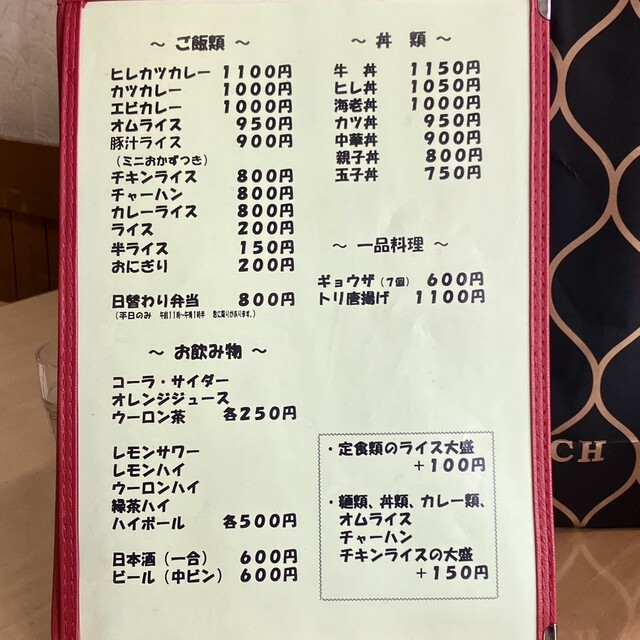 ～ ご飯類 ～
ヒレカツカレー 1100円
カツカレー 1000円
エビカレー 1000円
オムライス 950円
豚汁ライス 900円
(ミニおかずつき)
チキンライス 800円
チャーハン 800円
カレーライス 800円
ライス 200円
半ライス 150円
おにぎり 200円
日替わり弁当 800円
(平日のみ 午前11時～午後1時半 数に限りがあります。)
～ お飲み物 ～
コーラ・サイダー
オレンジジュース
ウーロン茶 各250円
レモンサワー
レモンハイ
ウーロンハイ
緑茶ハイ
ハイボール 各500円
日本酒(一合) 600円
ビール(中ビン) 600円
～ 丼 類 ～
牛 丼 1150円
ヒレ丼 1050円
海老丼 1000円
カツ丼 950円
中華丼 900円
親子丼 800円
玉子丼 750円
～ 一品料理 ～
ギョウザ(7個) 600円
トリ唐揚げ 1100円
・定食類のライス大盛
+100円
・麺類、丼類、カレー類、
オムライス
チャーハン
チキンライスの大盛
+150円
CH